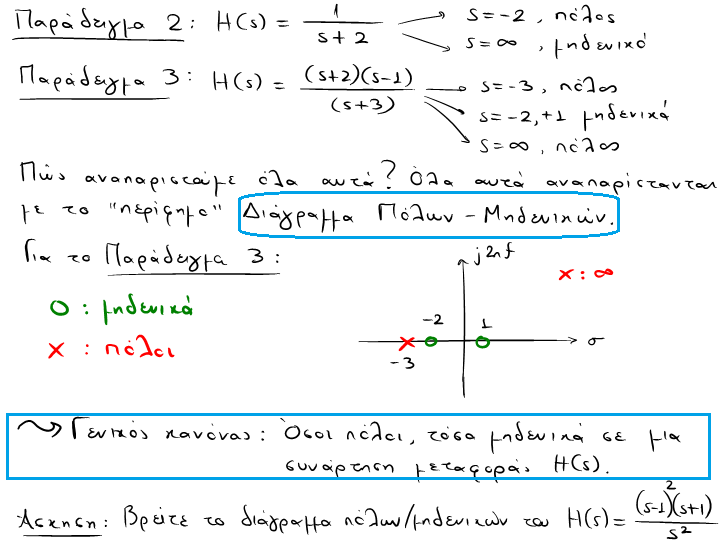 Παράδειγμα 2: H(s) = 1/(s+2) → s=-2, πόλος
→ s=∞, μηδενικό
Παράδειγμα 3: H(s) = (s+2)(s-1)/(s+3) → s=-3, πόλος
→ s=-2,+1 μηδενικά
→ s=∞, πόλος
Πώς αναπαριστούμε όλα αυτά? Όλα αυτά αναπαρίστανται
με το "περίφημο" Διάγραμμα Πόλων - Μηδενικών.
Για το Παράδειγμα 3:
j2πf
x: ∞
O : μηδενικά
x : πόλοι
-2
1
σ
-3
Γενικός κανόνας: Όσοι πόλοι, τόσα μηδενικά σε μια
συνάρτηση μεταφοράς H(s).
Άσκηση: Βρείτε το διάγραμμα πόλων/μηδενικών του H(s) = (s-1)²(s+1)/s²